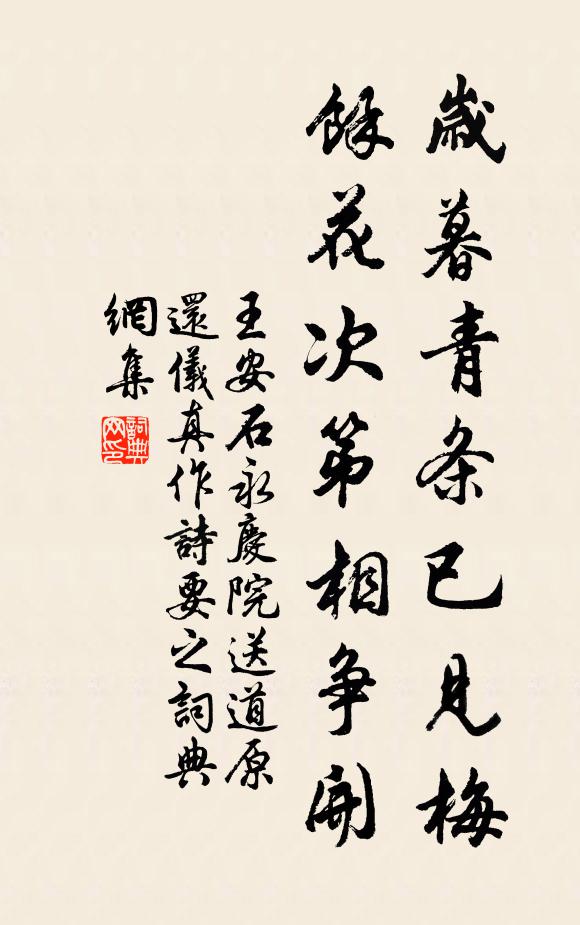 歲暮青条已見梅
餘花次第相争開
王安石永慶院送道原
還儀真作詩要之詞典
網集
詞典
网印